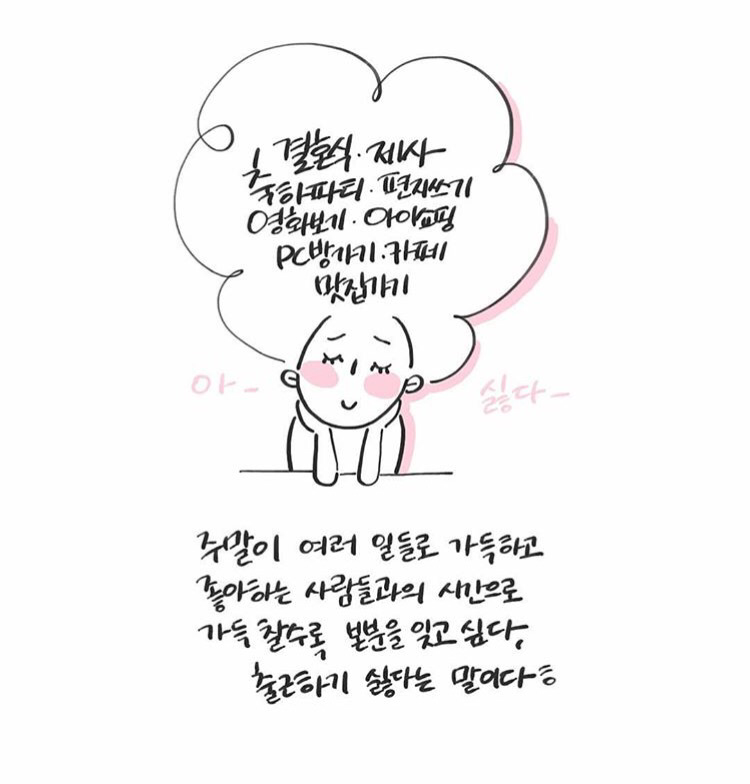 결혼식·제사
축하파티·편지쓰기
영화보기·아이쇼핑
PC방가기·카페
맛집가기
아_ 싫다_
주말이 여러 일들로 가득하고
좋아하는 사람들과의 시간으로
가득 찰수록 본분을 잊고 싶다,
출근하기 싫다는 말이다